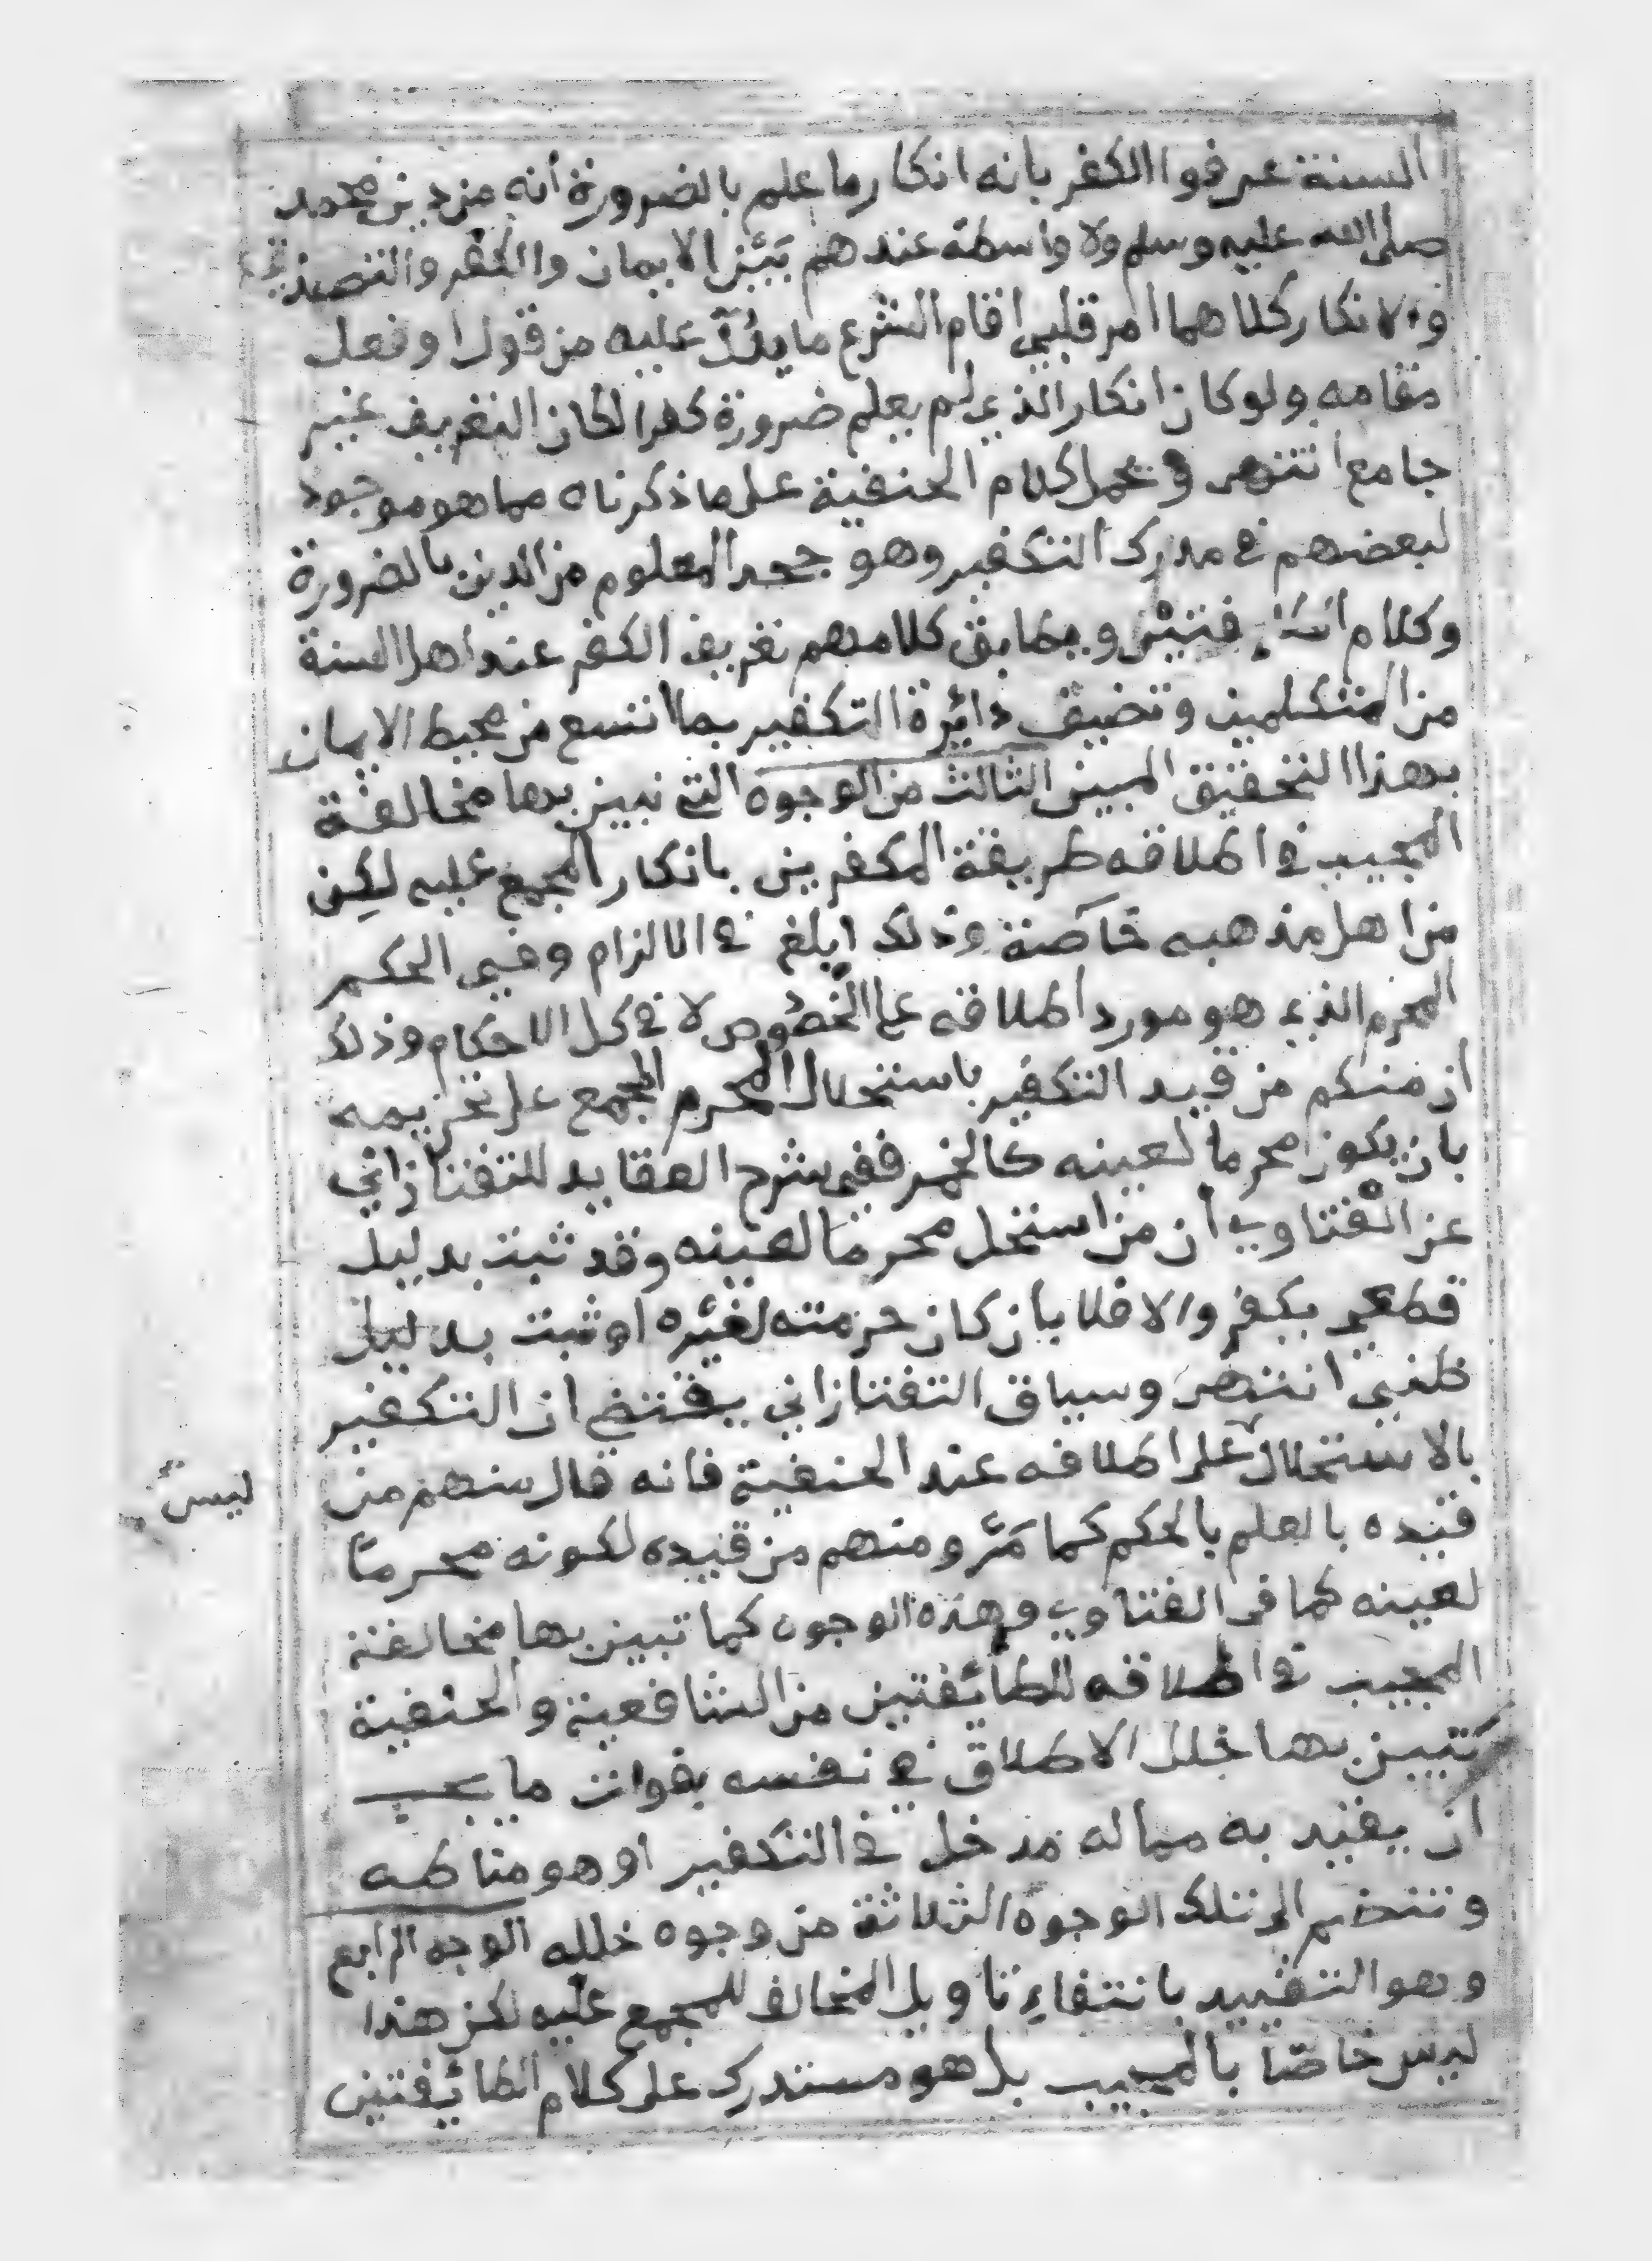 السنة عرفوا الكفر بانه انكار ما علم بالضرورة أنه من دين محمد
صلى الله عليه وسلم ولا واسطة عندهم بَيْن الايمان والكفر والتصديق
والانكار كلاهما امر قلبي اقام الشرع ما يدلّ عليه من قول او فعل
مقامه ولو كان انكار الذي لم يعلم ضرورة كفرا لكان التعريف غير
جامع انتهى و محمل كلام الحنفية على ما ذكرناه مما هو موجود
لبعضهم في مدرك التكفير وهو جحد المعلوم من الدين بالضرورة
وكلام ويطابق كلامهم تعريف الكفر عند اهل السنة
من المتكلمين وتضيق دائرة التكفير بما اتسع من محيط الايمان
بهذا التحقيق المبين الثالث من الوجوه التي نبين بها مخالفة
المجيب في اطلاقه طريقة المكفرين بانكار المجمع عليه لكن
من اهل مذهبه خاصة وذلك ابلغ في الالزام وفي الحكم
المحرم الذي هو مورد اطلاقه على الخصوص لا في كل الاحكام وذلك
ان منكم من قيد التكفير باستحلال المحرم المجمع على تحريمه
بان يكون محرما لعينه كالخمر ففي شرح العقايد للتفتازاني
عن الفتاوي أن من استحل محرما لعينه وقد ثبت بدليل
قطعي يكفر والا فلا بان كان حرمته لغيره او ثبت بدليل
ظني انتهى وسياق التفتازاني يقتضي ان التكفير
بالاستحلال على اطلاقه عند الحنفية فانه قال منهم من
ليس
قيده بالعلم بالحكم كما مَرَّ ومنهم من قيده لكونه محرما
لعينه كما في الفتاوي وهذه الوجوه كما تبين بها مخالفة
المجيب في اطلاقه للطائفتين من الشافعية والحنفية
تتبين بها خلل الاطلاق في نفسه بفوات ما يجب
ان يقيد به مما له مدخل في التكفير او هو مناطه
وتنضم الى تلك الوجوه الثلاثة من وجوه خلله الوجه الرابع
وهو التقييد بانتفاء تاويل المخالف للمجمع عليه لكن هذا
ليس خاصّا بالمجيب بل هو مستدرك على كلام الطائفتين